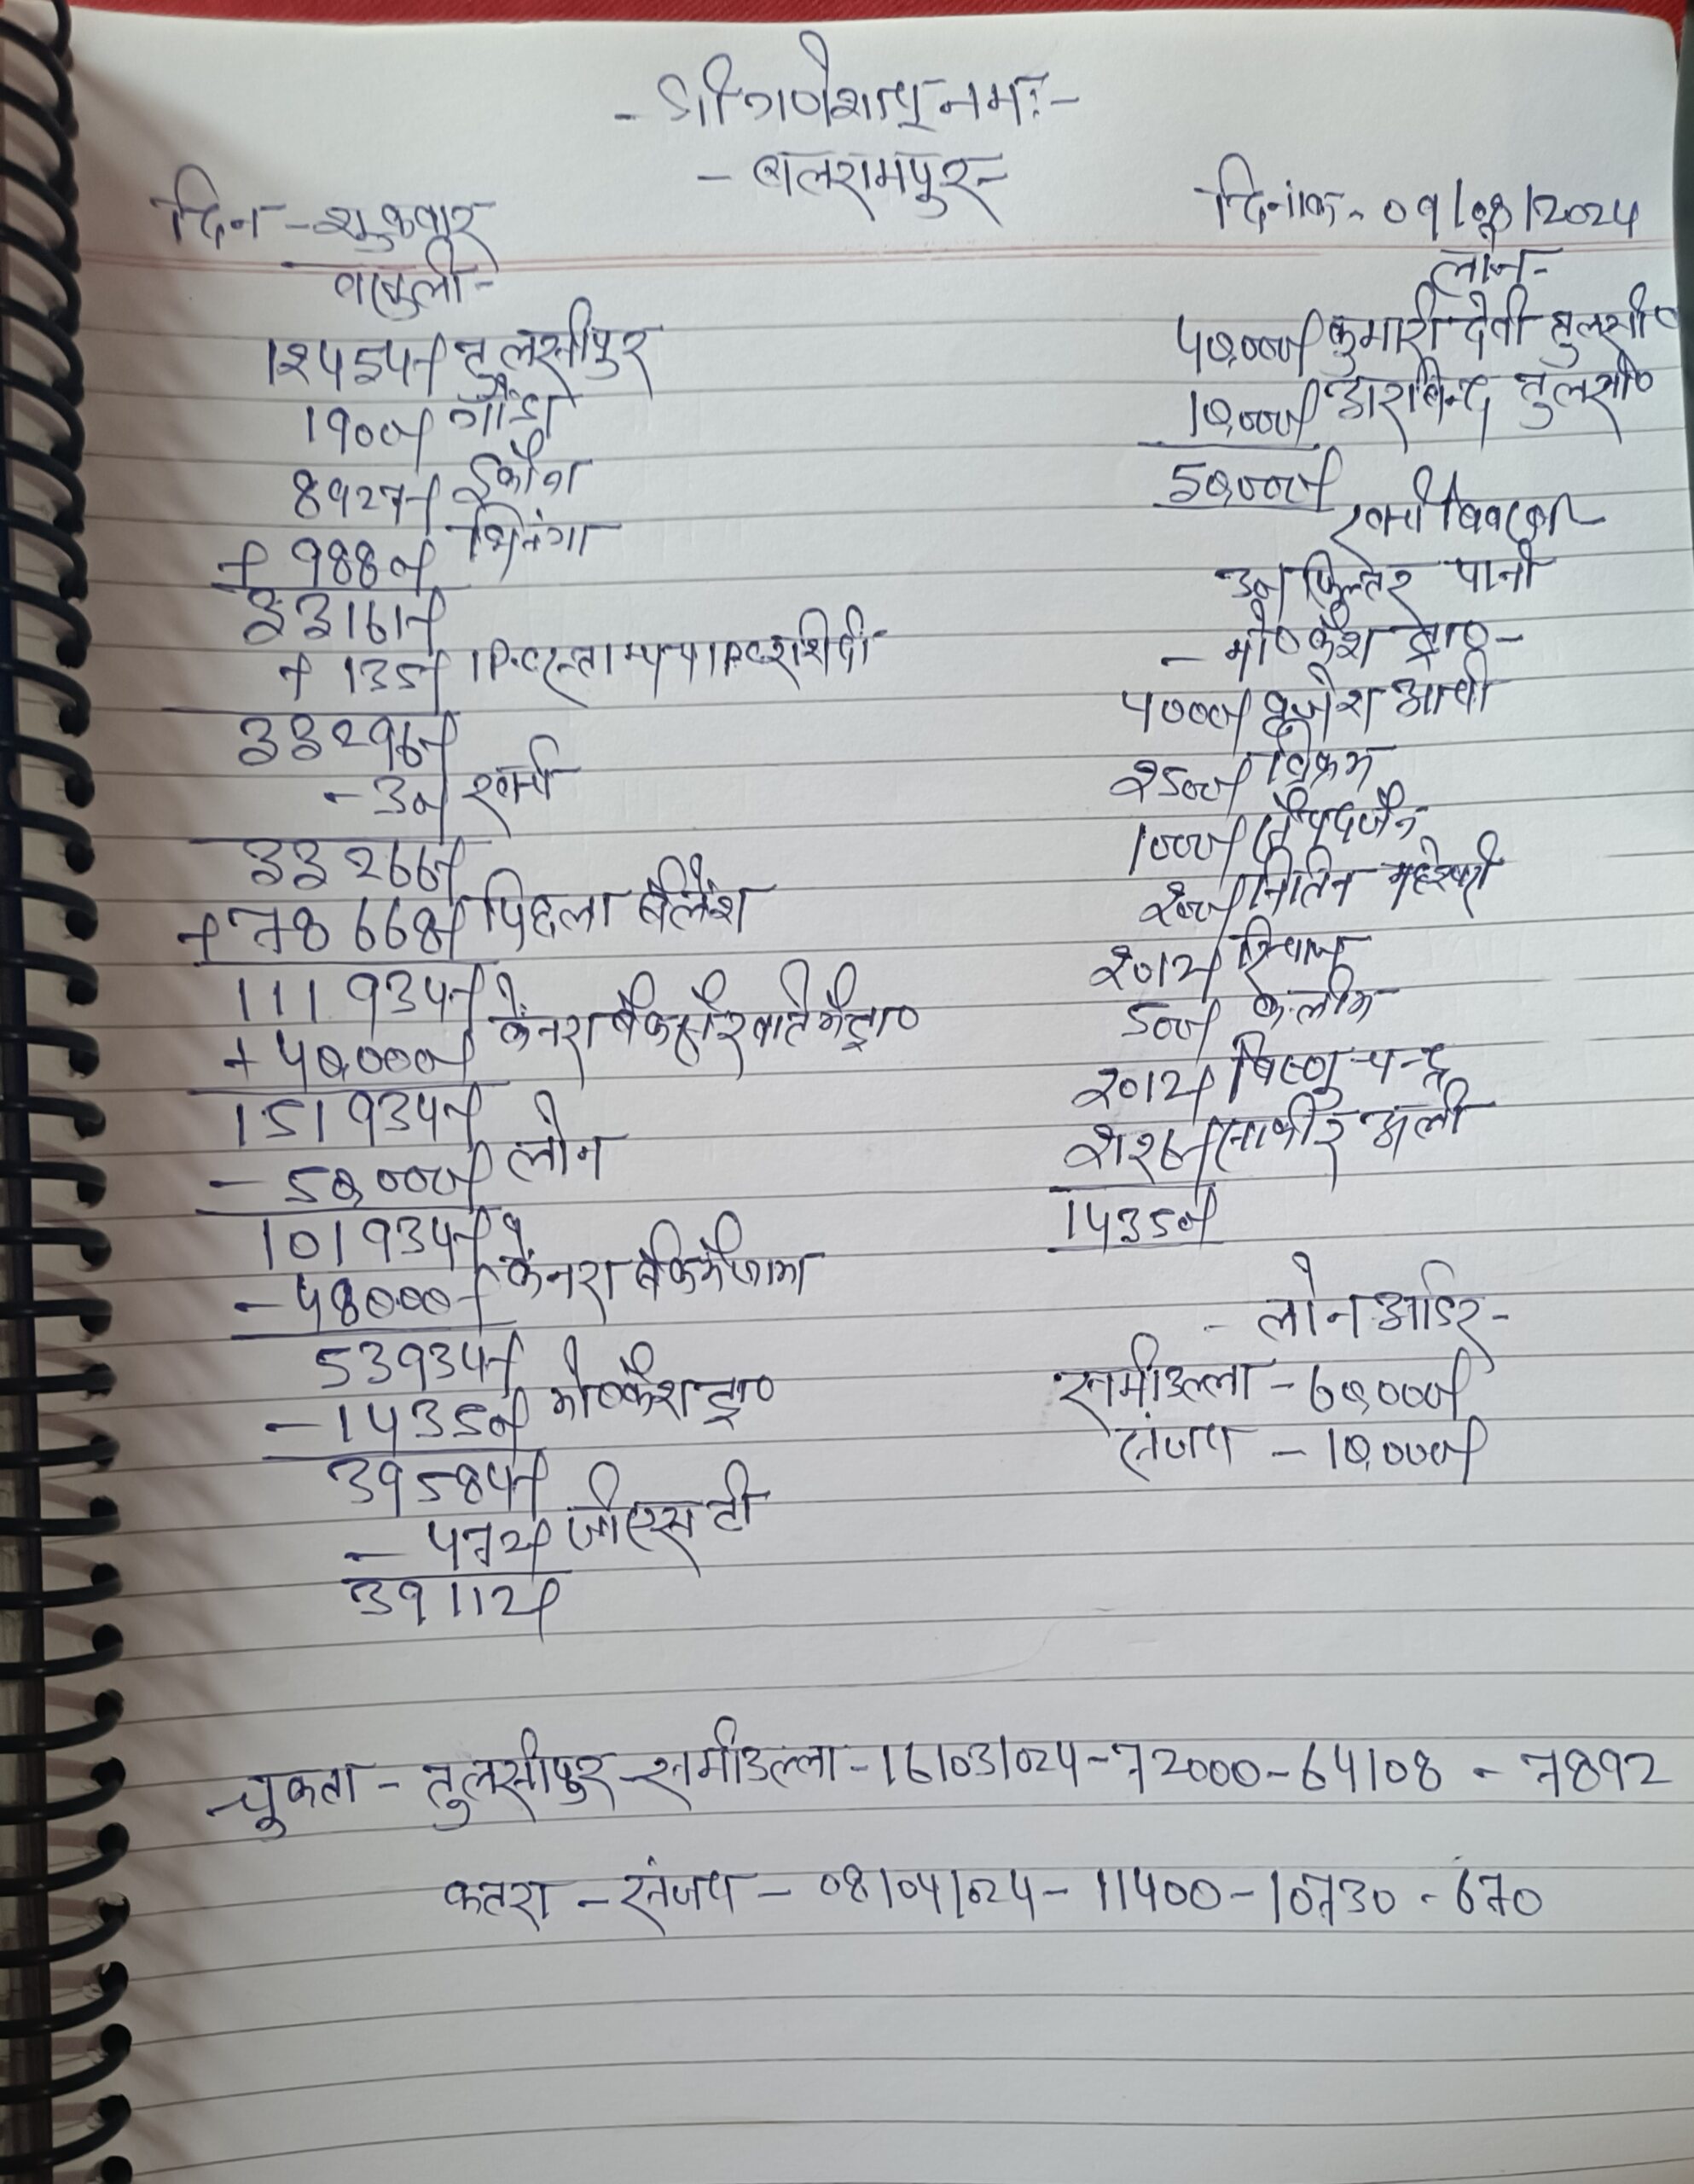 - श्री गणेशाय नमः -
- बलरामपुर -
दिन - शुक्रवार
दिनांक - 09/08/2024
वसुली -
12454/- तुलसीपुर
1900/- गोंडा
8927/- ईकौना
+ 9880/- भिनंगा
33161/-
+ 135/-
33296/-
- 30/- खर्चा
33266/-
+ 78668/- पिछला बैलेंश
111934/-
+ 40,000/- कैनरा बैंक से खाते में ड्रा०
151934/-
- 50,000/- लोन
101934/-
- 48000/- कैनरा बैंक में जमा
53934/-
- 14350/- मो० कैश ड्रा०
39584/-
- 472/- जीएसटी
39112/-
लोन -
40,000/- कुमारी देवी तुलसी०
10,000/- अरबिन्द तुलसी०
50,000/-
खर्चा
30/- फिल्टर पानी
- मो० कैश ड्रा० -
4000/- बृजेश
2500/- विक्रम
1000/-
200/- नितिन महेश्वरी
2012/- रियाज
500/- कलीम
2012/- बिष्णु चन्द्र
2126/- अली
14350/-
- लोन आर्डर -
समीउल्ला - 60,000/-
संजय - 10,000/-
चुकता - तुलसीपुर - समीउल्ला - 16/03/024 - 72000 - 64108 - 7892
कतरा - संजय - 08/04/024 - 11400 - 10730 - 670